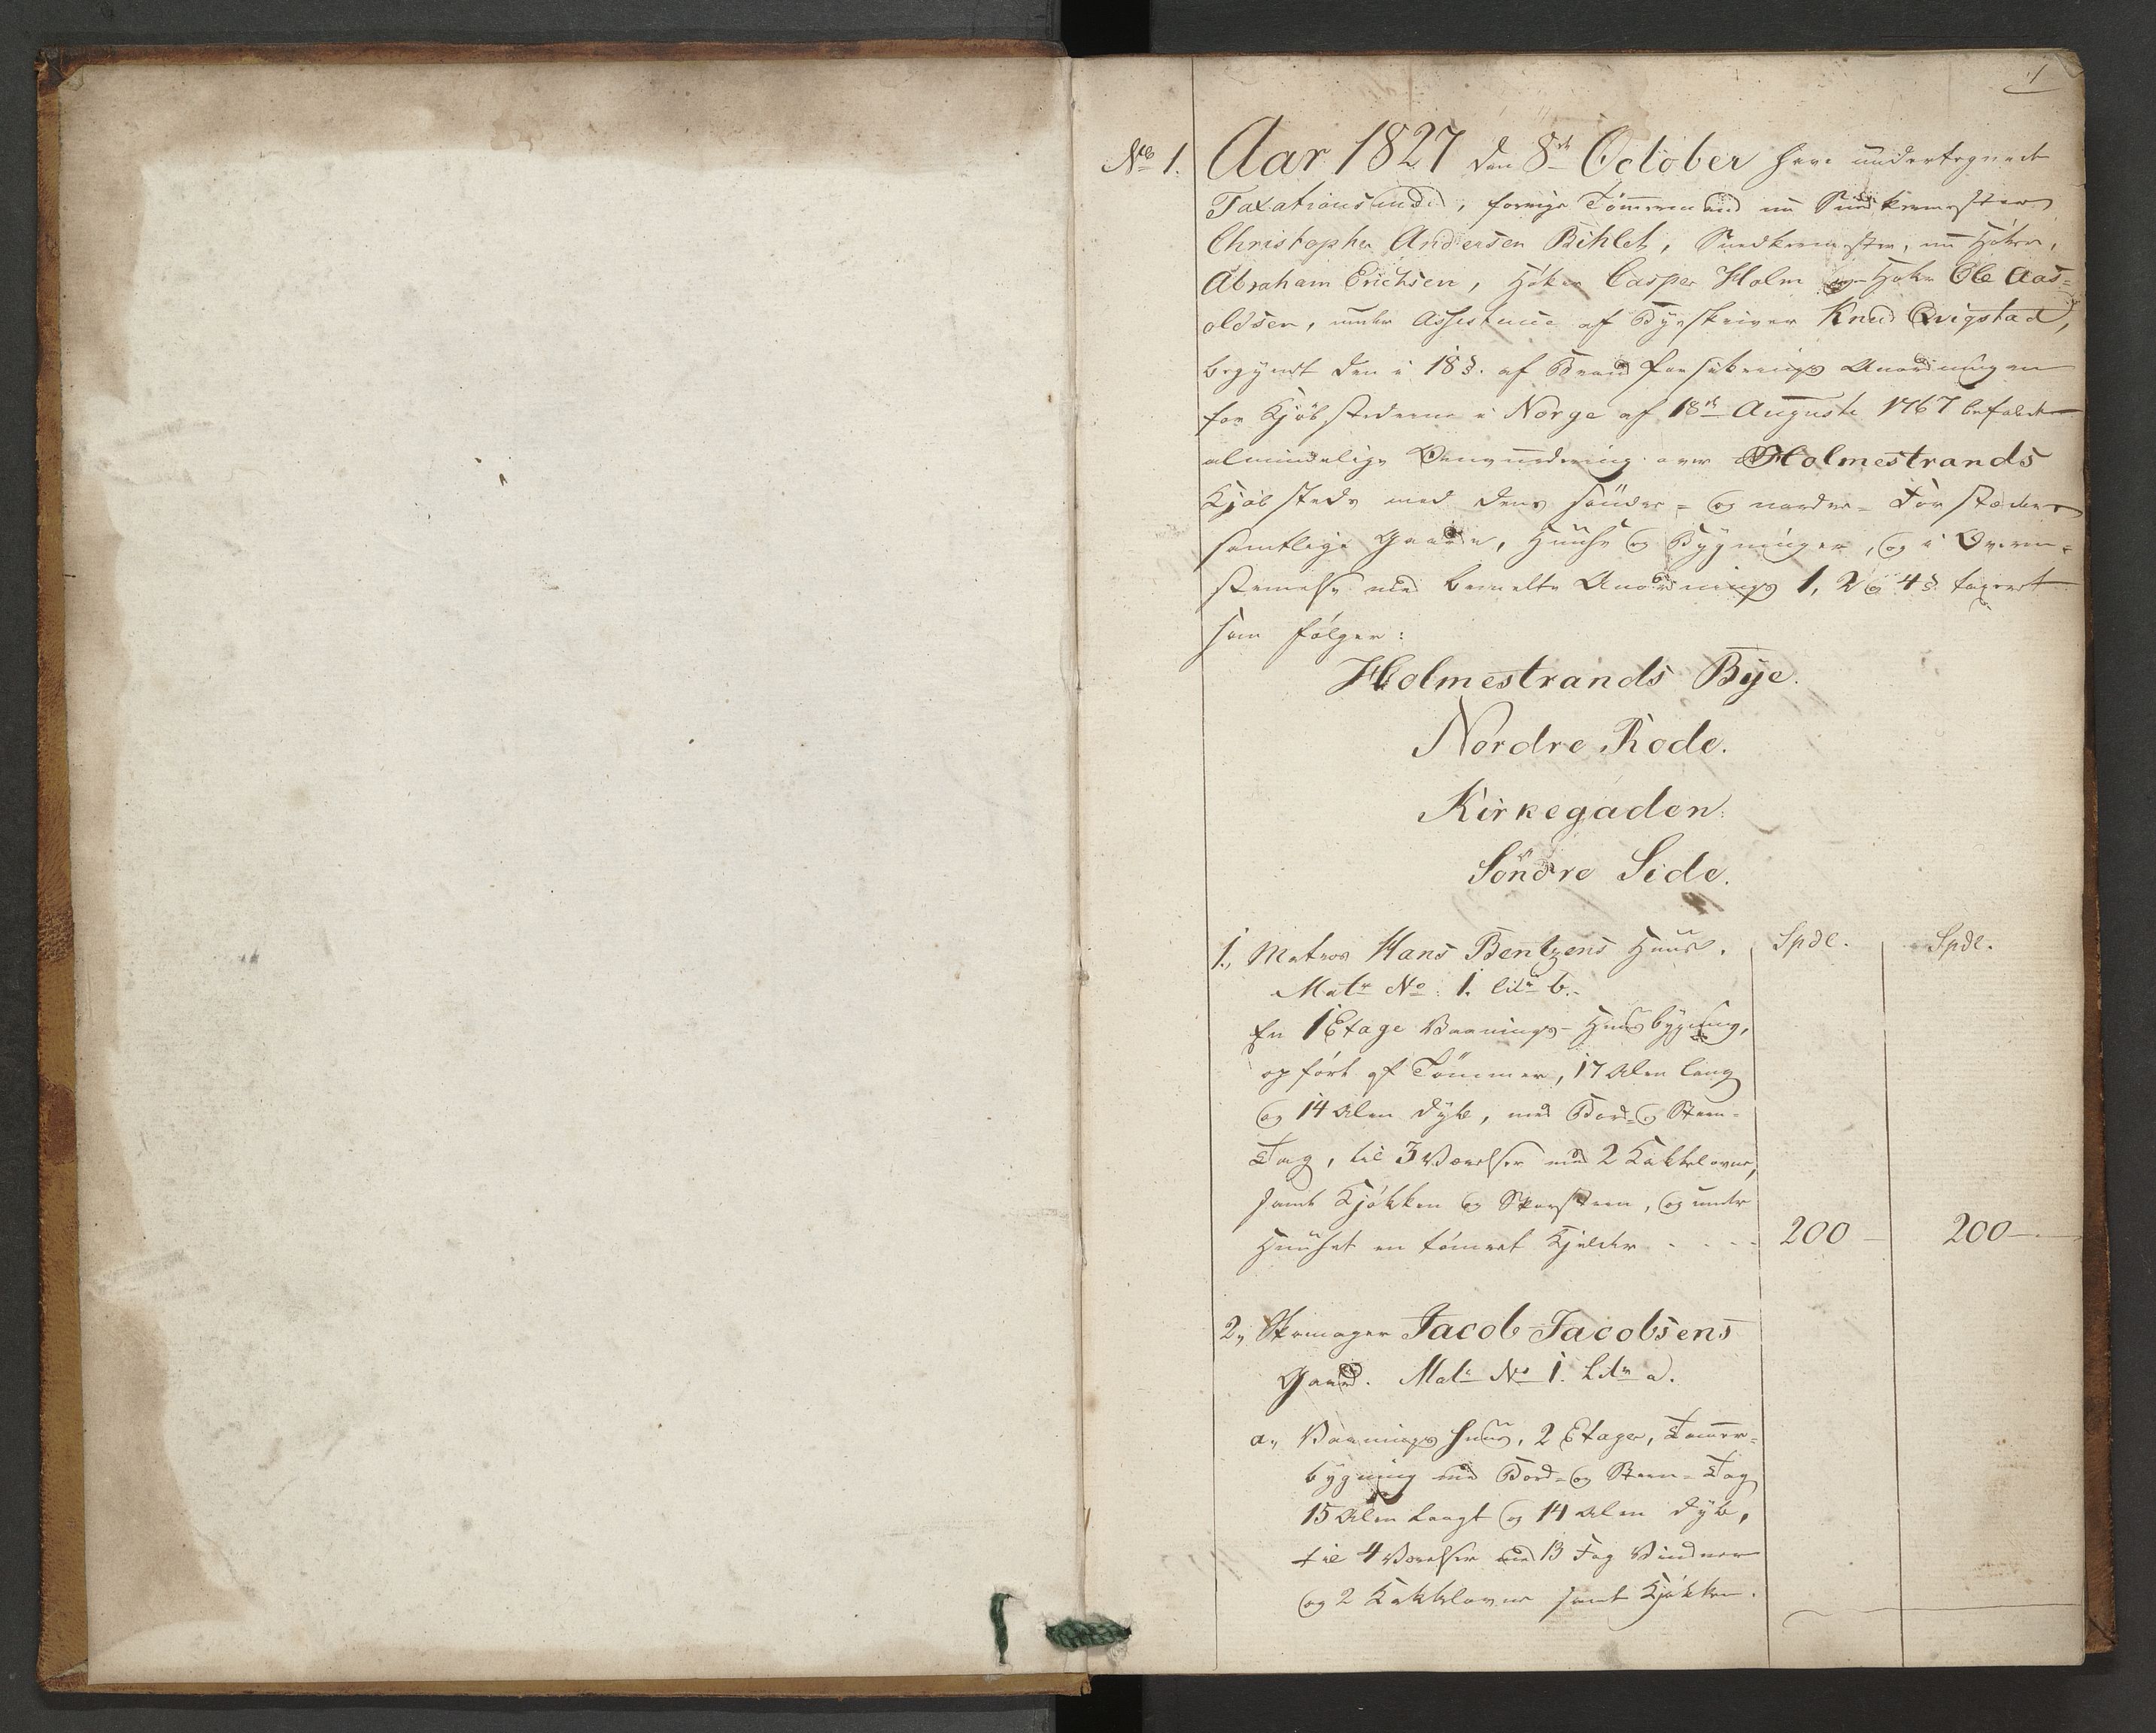 1
No 1. Aar 1827 den 8de October have undertegnede
Taxationsmænd, forrige Tømmermand nu Snedkermester
Christopher Andersen Bihlet, Snedkermester, nu Høker,
Abraham Erichsen, Høker Casper Holm og Høker Ole Aas=
oldsen, under Assistence af Byeskriver Knud Qvigstad,
begyndt den i 18 §. af Brandforsikrings Anordningen
for Kjøbstæderne i Norge af 18de Augusti 1767 befalede
almindelige Omvurdering over Holmestrands
Kjøbstæds med dens søndre= og nordre= Forstæder
samtlige Gaarde, Huuse og Bygninger, og i Overeen=
stemmelse med bemeldte Anordnings 1, 2 og 4 §. taxeret
som følger:
Holmestrands Bye.
Nordre Rode.
Kirkegaden.
Söndre Side.
1., Matros Hans Bentzens Huus. Spdl. Spdl.
Matr No 1. litr b.
En 1 Etage Vaanings-Huusbygning,
opført af Tömmer, 17 Alen lang
og 14 Alen dyb, med Bord= og Steen=
Tag, til 3 Værelser med 2 Kakkelovne,
samt Kjøkken og Skorsteen, og under
Huuset en tømret Kjelder - - - - 200 - 200 -
2., Skomager Jacob Jacobsens
Gaard. Matr No 1. Litr a.
a., Vaaningshuus, 2 Etager, Tømmer=
bygning med Bord= og Steen= Tag
15 Alen langt og 14 Alen dyb,
til 4 Værelser med 13 Fag Vinduer
og 2 Kakkelovne samt Kjøkken.